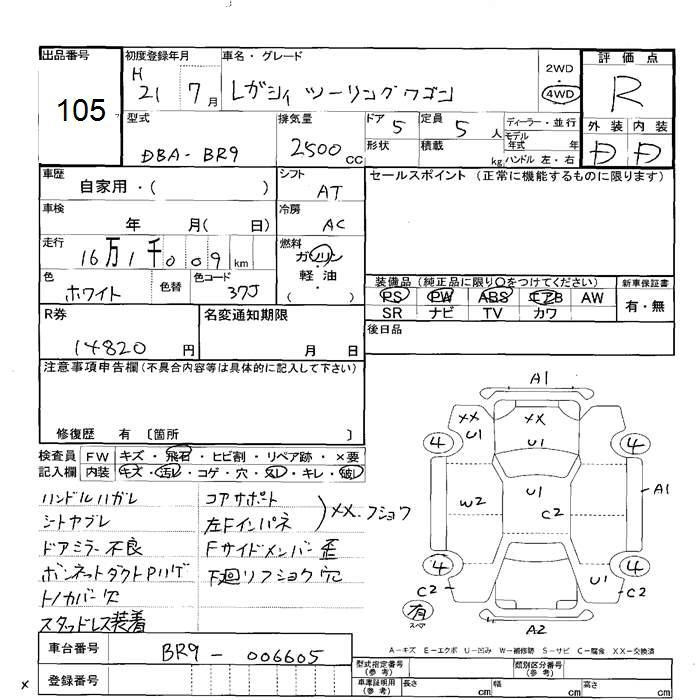 出品番号
105
初度登録年月
H
21 7月
車名・グレード
レガシィ ツーリングワゴン
2WD
・
4WD
評価点
R
外装 内装
D D
型式
DBA-BR9
排気量
2500 CC
ドア 5
形状
定員 5 人
積載 kg
ディーラー・並行
モデル
年式 年
ハンドル 左・右
車歴
自家用・( )
シフト
AT
セールスポイント (正常に機能するものに限ります)
車検
年 月( 日)
冷房
AC
走行
16万1千009km
燃料
ガソリン
・
軽油
( )
色
ホワイト
色替
色コード
37J
装備品 (純正品に限り○をつけてください)
新車保証書
PS PW ABS エアB AW
SR ナビ TV カワ
有・無
R券
14820 円
名変通知期限
月 日
後日品
注意事項申告欄 (不具合内容等は具体的に記入して下さい)
修復歴 有 〔箇所 〕
検査員
記入欄
FW キズ・飛石・ヒビ割・リペア跡・×要
内装 キズ・汚レ・コゲ・穴・スレ・キレ・破レ
ハンドルハガレ
シートヤブレ
ドアミラー不良
ボンネットダクトPハゲ
トノカバー欠
スタッドレス装着
コアサポート
左Fインパネ
XX.フショウ
Fサイドメンバー歪
下廻リフショク穴
A1
XX XX
U1 U1
4 4
W2 U1 C2 A1
4 4
C2 U1 C2
有
スペア
A2
A-キズ E-エクボ U-凹み W-補修跡 S-サビ C-腐食 XX-交換済
車台番号
BR9-006605
登録番号
型式指定番号
(参考)
類別区分番号
(参考)
車庫証明用
(参考)
長さ cm 幅 cm 高さ cm
x